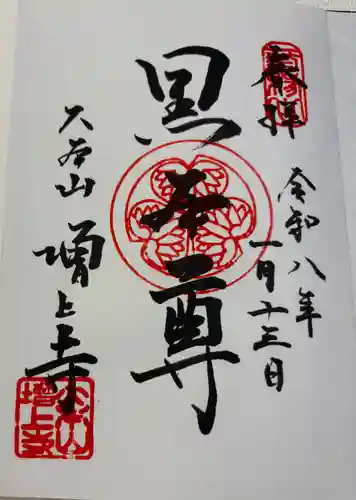 奉拝
令和八年
一月十三日
黒本尊
大本山
増上寺
増上寺